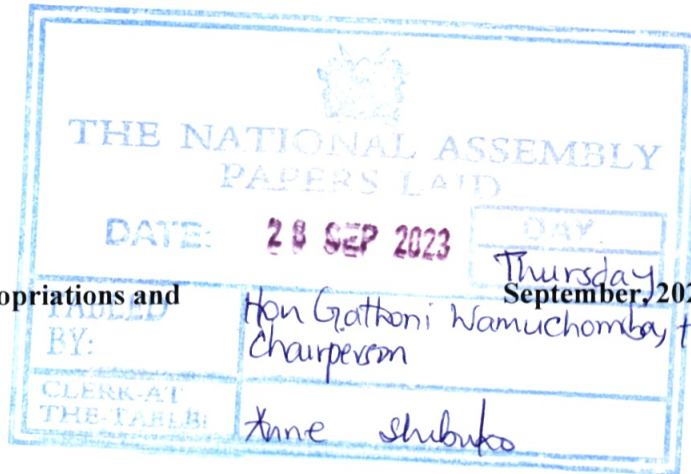 THE NATIONAL ASSEMBLY
PAPERS LAID
DATE: 28 SEP 2023 DAY.
Thursday
opriations and September, 202
TABLED
BY: Hon Gathoni Wamuchomba,
Chairperson
CLERK-AT
THE-TABLE: Anne Shibuko